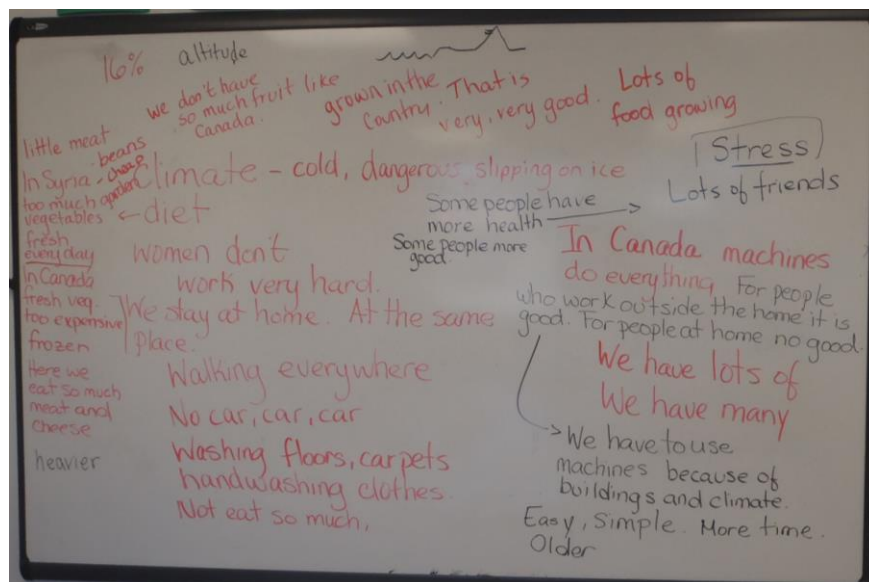 16% altitude
we don't have
so much fruit like
Canada.
grown in the
Country. That is
very, very good.
Lots of
food growing
little meat
beans
cheap
In Syria - garden
too much
vegetables ← diet
fresh
everyday
In Canada
fresh veg.
too expensive
frozen
Here we
eat so much
meat and
cheese
heavier
Climate - cold, dangerous, slipping on ice
women don't
work very hard.
We stay at home. At the same
place.
Walking everywhere
No car, car, car
Washing floors, carpets
handwashing clothes.
Not eat so much.
Stress
Lots of friends
Some people have
more health →
Some people more
good.
In Canada machines
do everything. For people
who work outside the home it is
good. For people at home no good.
We have lots of
We have many
→ We have to use
machines because of
buildings and climate.
Easy, Simple. More time.
Older